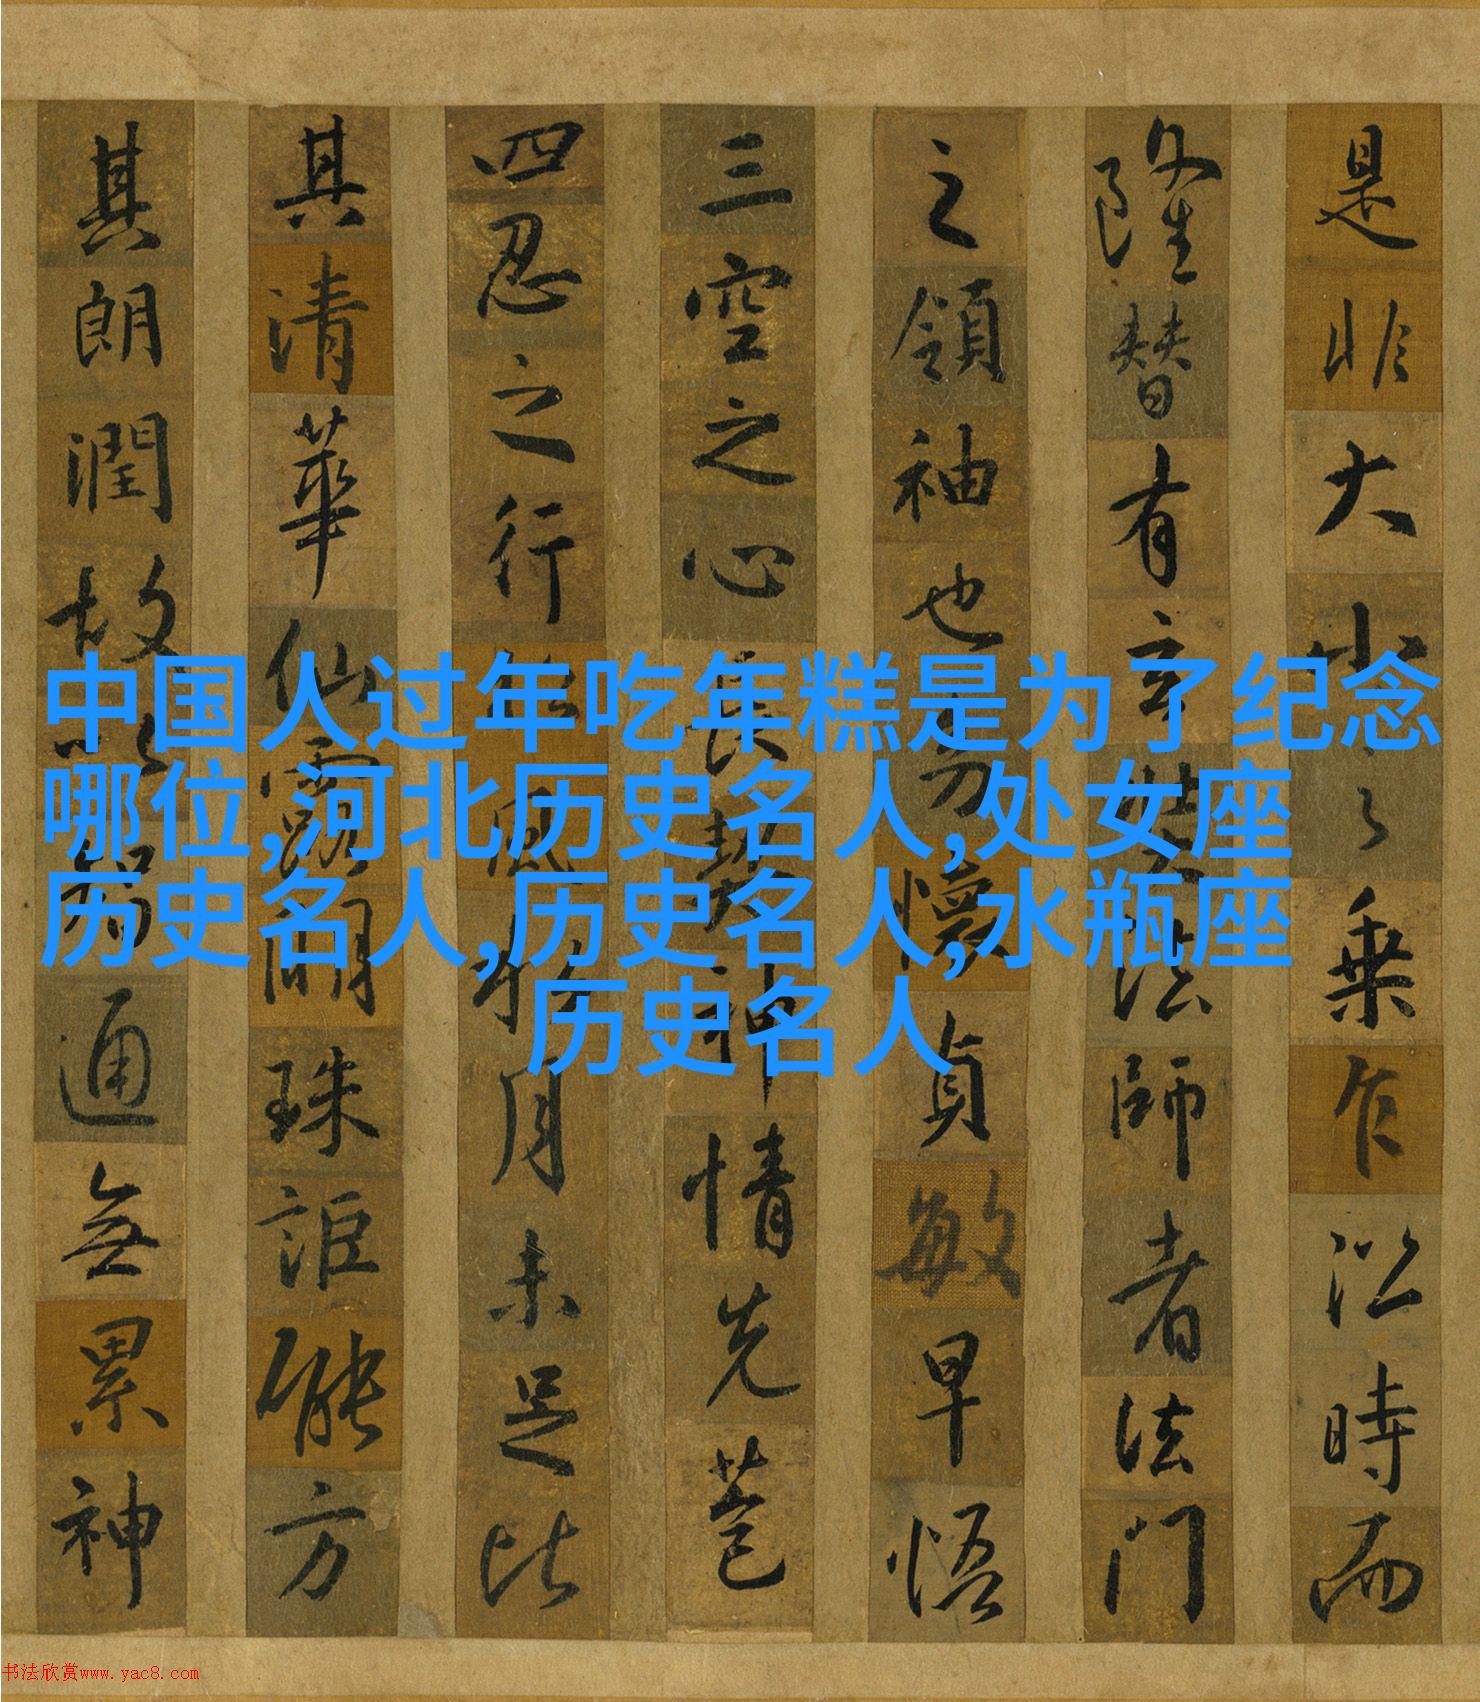 是非大小之乘乍沿時而
隆替有玄奘法師者法門
之領袖也幼懷貞敏早悟
三空之心長契神情先苞
四忍之行松風水月未足比
其清華仙露明珠詎能方
其朗潤故以智通無累神
中国人过年吃年糕是为了纪念
哪位,河北历史名人,处女座
历史名人,历史名人,水瓶座
历史名人
书法欣赏www.yac8.com